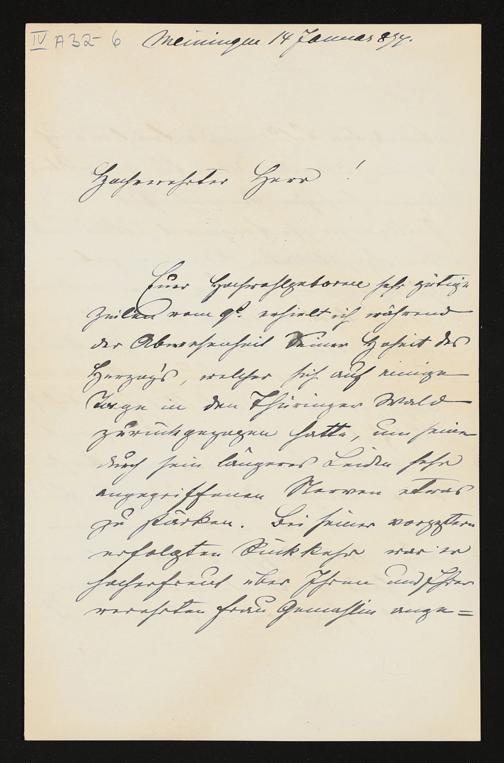 IV A 32-6 Meiningen 14 Januar 897.
Hochverehrter Herr!
Euer Hochwohlgeboren sehr gütige
Zeilen vom 9t. erhielt ich während
der Abwesenheit Seiner Hoheit des
Herzogs, welcher sich auf einige
Tage in den Thüringer Wald
zurückgezogen hatte, um seine
durch sein längeres Leiden sehr
angegriffenen Nerven etwas
zu stärken. Bei seiner vorgestern
erfolgten Rückkehr war er
hocherfreut über Ihren und Ihrer
verehrten Frau Gemahlin ange=